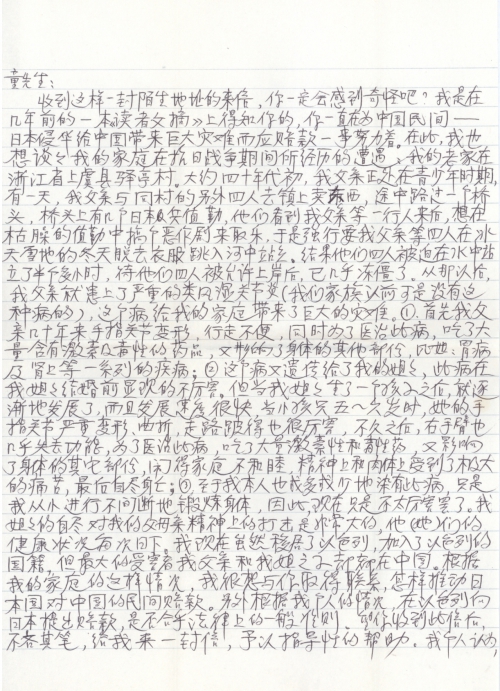 童先生:
收到这样一封陌生地址的来信,你一定会感到奇怪吧?我是在
几年前的一本《读者文摘》上得知你的,你一直在为中国民间一
日本侵华给中国带来巨大灾难而应赔款一事努力着。在此,我也
想谈谈我的家庭在抗日战争期间所经历的遭遇:我的老家在
浙江省上虞县驿亭村。大约四十年代初,我父亲正处在青少年时期,
有一天,我父亲与同村的另外四人去镇上卖东西,途中路过一个桥
头,桥头上有几个日本兵值勤,他们看到我父亲等一行人来后,想在
枯燥的值勤中搞个恶作剧来取乐,于是强行要我父亲等四人在冰
天雪地的冬天脱去衣服跳入河中站着。结果他们四人被迫在水中站
立了半个多小时,待他们四人被允许上岸后,已几乎冻僵了。从那以后,
我父亲就患上了严重的类风湿关节炎(我们家族以前可是没有这
种病的),这个病给我的家庭带来了巨大的灾难。①.首先我父
亲几十年来手指关节变形,行走不便,同时为了医治此病,吃了大
量含有激素及毒性的药品,又影响了身体的其他部份,比如:胃病
及肾上等一系列的疾病;②这个病又遗传给了我的姐姐,此病在
我姐姐结婚前显现的不厉害。但当我姐姐生了一个孩子之后,就逐
渐地发展了,而且发展速度很快,当小孩只五~六岁时,她的手
指关节严重变形、曲折,走路跛得也很厉害,不久之后,右手臂也
几乎失去功能,为了医治此病,吃了大量激素性和毒性药,又影响
了身体的其它部份,闹得家庭不和睦,精神上和肉体上受到了极大
的痛苦,最后自尽身亡;③至于我本人也或多或少地染有此病,只是
我从小进行不间断地锻炼身体,因此,现在只是不太厉害罢了。我
姐姐的自尽对我的父母亲精神上的打击是非常大的,他(她)们的
健康状况每次日下。我现在虽然移居了以色列,加入了以色列的
国籍,但最大的受害者我父亲和我姐之子却都在中国。根据
我的家庭的这样情况,我很想与你取得联系,怎样推动日
本国对中国的民间赔款。另外根据我个人的情况,在以色列向
日本提出赔款,是不合乎法律上的一般准则。望你收到此信后,
不吝其笔,给我来一封信,予以指导性的帮助。我个人认为,